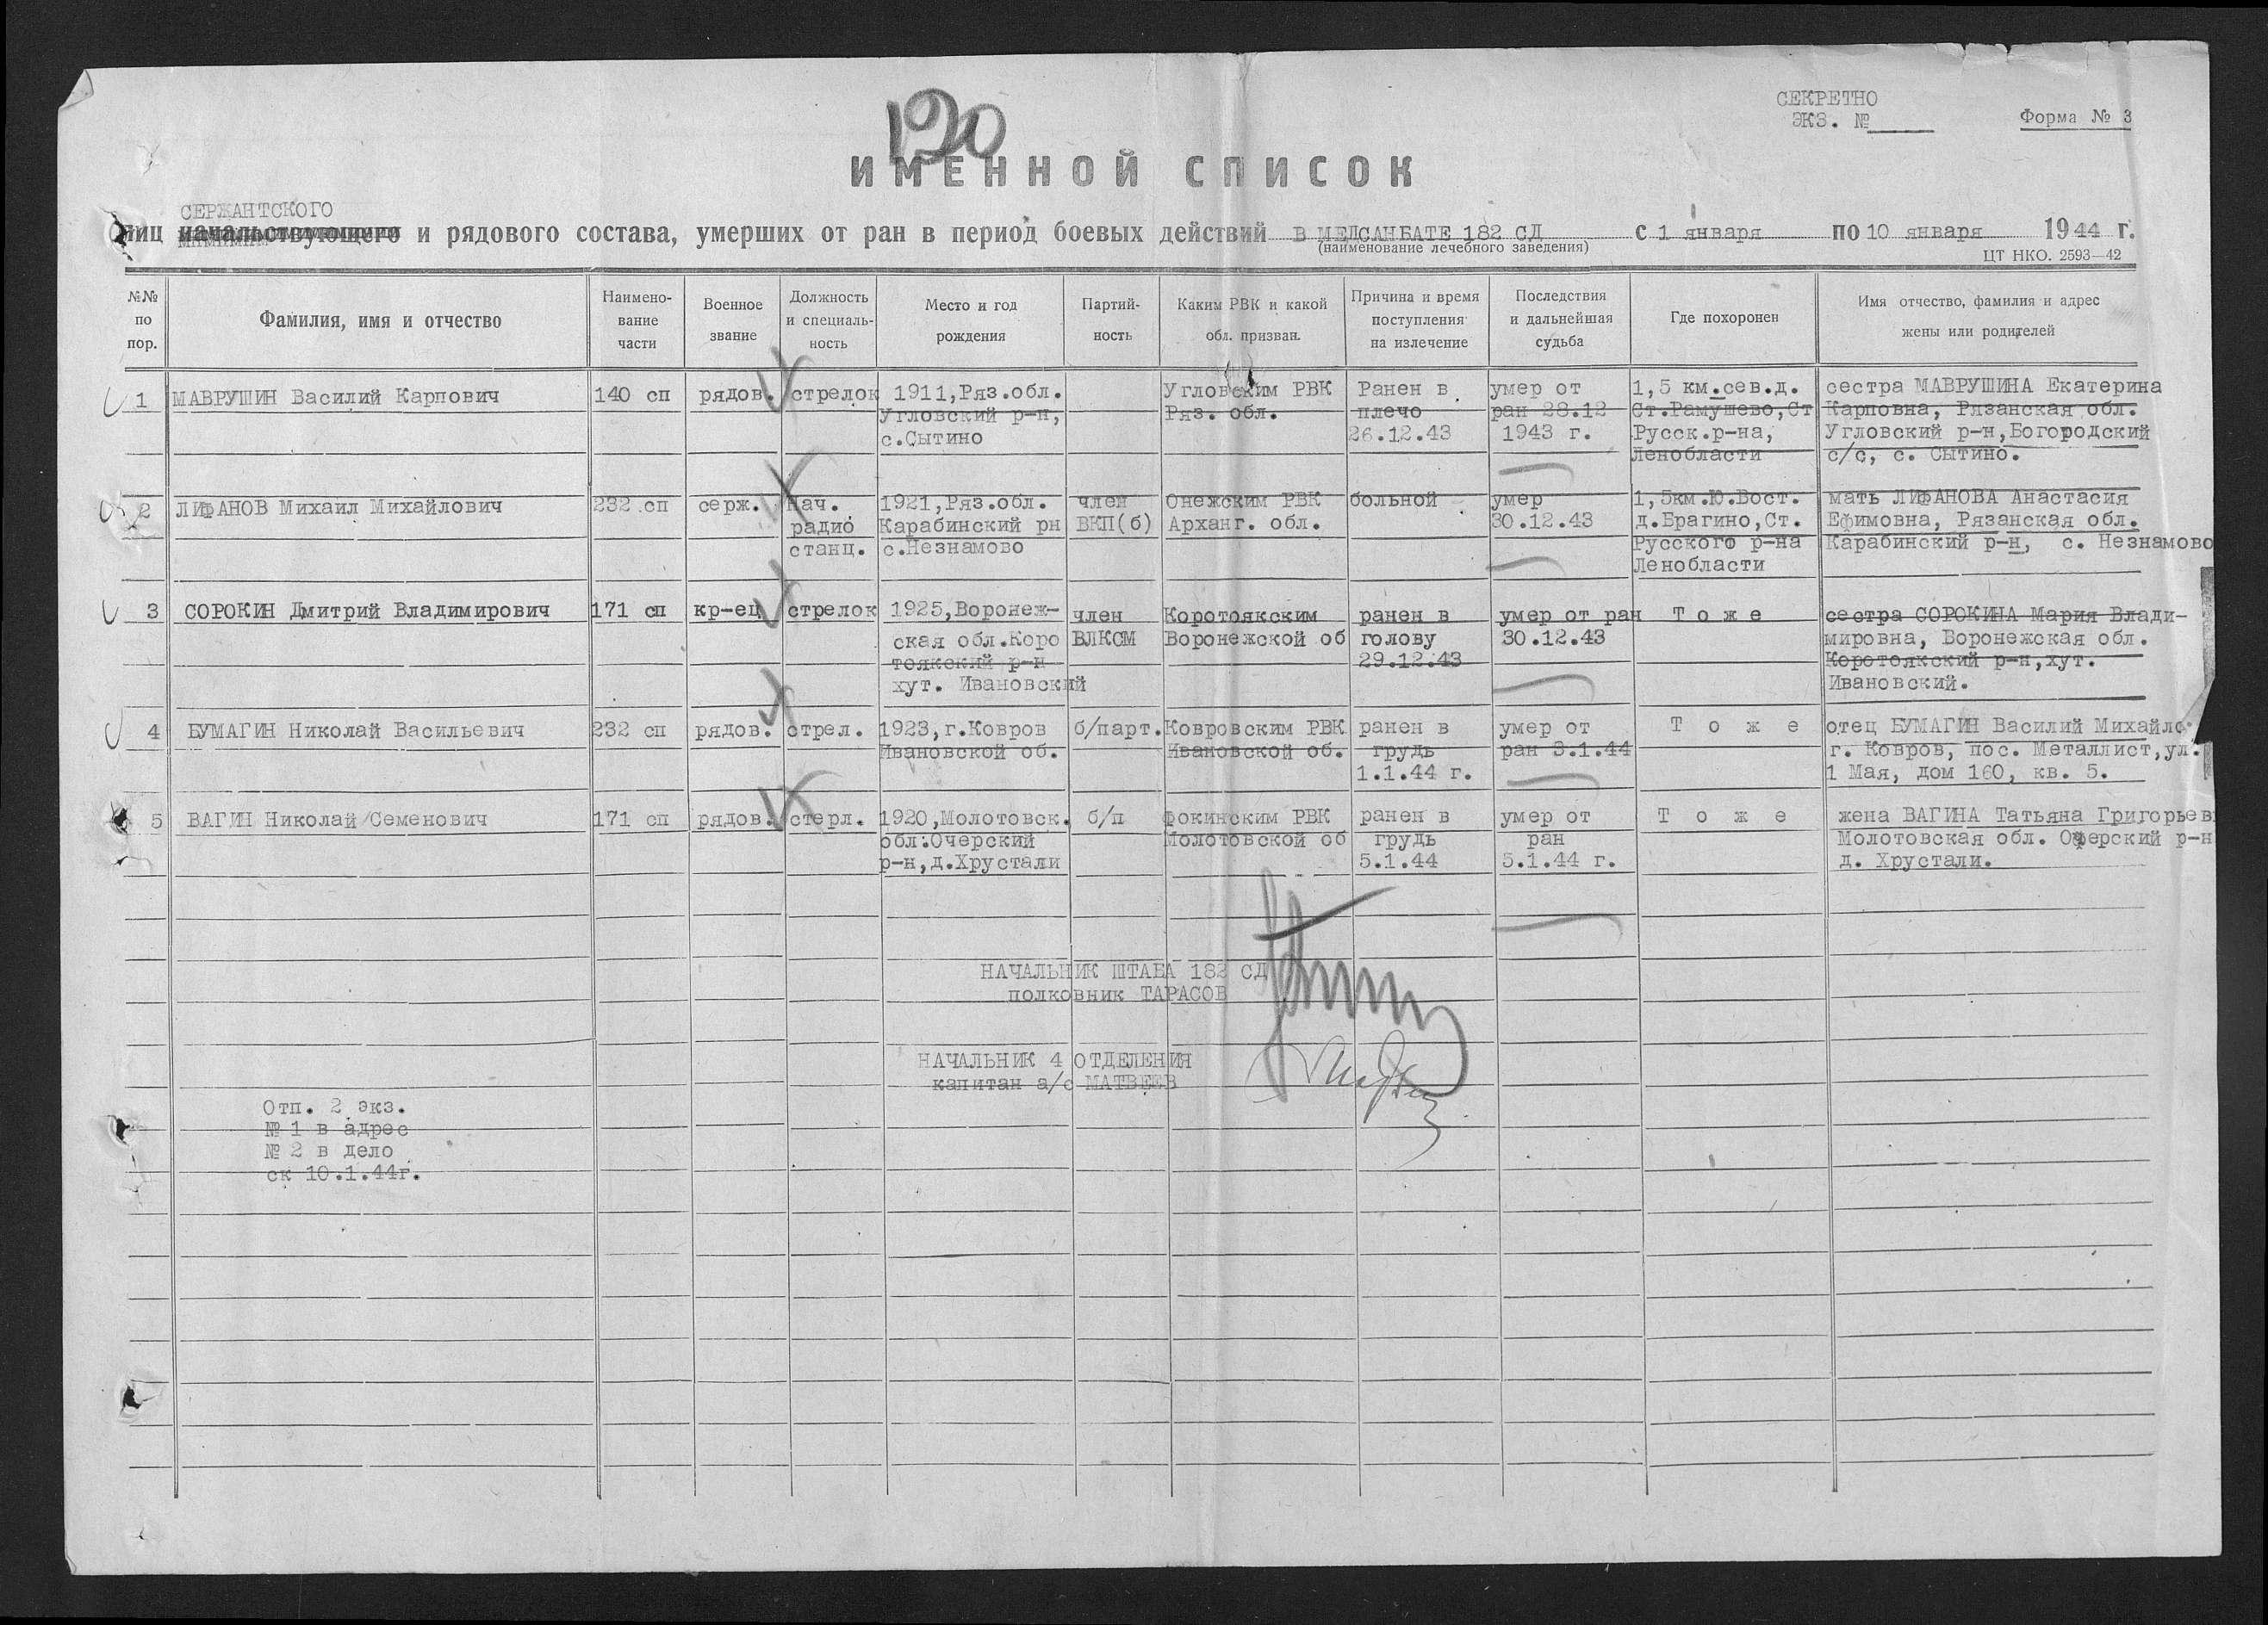 120
СЕКРЕТНО
ЭКЗ. №
Форма № 3
ИМЕННОЙ СПИСОК
СЕРЖАНТСКОГО
лиц начальствующего и рядового состава, умерших от ран в период боевых действий в МЕДСАНБАТЕ 182 СД с 1 января по 10 января 1944 г.
(наименование лечебного заведения)
ЦТ НКО. 2593—42
№№ по пор.
Фамилия, имя и отчество
Наимено- вание части
Военное звание
Должность и специаль- ность
Место и год рождения
Партий- ность
Каким РВК и какой обл. призван.
Причина и время поступления на излечение
Последствия и дальнейшая судьба
Где похоронен
Имя отчество, фамилия и адрес жены или родителей
1 МАВРУШИН Василий Карпович 140 сп рядов. стрелок 1911,Ряз.обл. Угловским РВК Ранен в умер от 1,5 км.сев.д. сестра МАВРУШИНА Екатерина
Угловский р-н, Ряз. обл. плечо ран 28.12 Ст.Рамушево,Ст Карповна, Рязанская обл.
с.Сытино 26.12.43 1943 г. Русск.р-на, Угловский р-н,Богородский
Ленобласти с/с, с. Сытино.
2 ЛИФАНОВ Михаил Михайлович 232 сп серж. нач. 1921,Ряз.обл. член Онежским РВК больной умер 1,5км.Ю.Вост. мать ЛИФАНОВА Анастасия
радио Карабинский рн ВКП(б) Арханг. обл. 30.12.43 д.Брагино,Ст. Ефимовна, Рязанская обл.
станц. с.Незнамово Русского р-на Карабинский р-н, с. Незнамово
Ленобласти
3 СОРОКИН Дмитрий Владимирович 171 сп кр-ец стрелок 1925,Воронеж- член Коротоякским ранен в умер от ран Т о ж е сестра СОРОКИНА Мария Влади-
ская обл.Коро ВЛКСМ Воронежской об голову 30.12.43 мировна, Воронежская обл.
тоякский р-н 29.12.43 Коротоякский р-н,хут.
хут. Ивановский Ивановский.
4 БУМАГИН Николай Васильевич 232 сп рядов. стрел. 1923,г.Ковров б/парт. Ковровским РВК ранен в умер от Т о ж е отец БУМАГИН Василий Михайло
Ивановской об. Ивановской об. грудь ран 3.1.44 г. Ковров, пос. Металлист,ул.
1.1.44 г. 1 Мая, дом 160, кв. 5.
5 ВАГИН Николай Семенович 171 сп рядов. стерл. 1920,Молотовск. б/п Фокинским РВК ранен в умер от Т о ж е жена ВАГИНА Татьяна Григорьев
обл.Очерский Молотовской об грудь ран Молотовская обл. Очерский р-н
р-н,д.Хрустали 5.1.44 5.1.44 г. д. Хрустали.
НАЧАЛЬНИК ШТАБА 182 СД
полковник ТАРАСОВ
НАЧАЛЬНИК 4 ОТДЕЛЕНИЯ
капитан а/с МАТВЕЕВ
Отп. 2 экз.
№ 1 в адрес
№ 2 в дело
ск 10.1.44г.